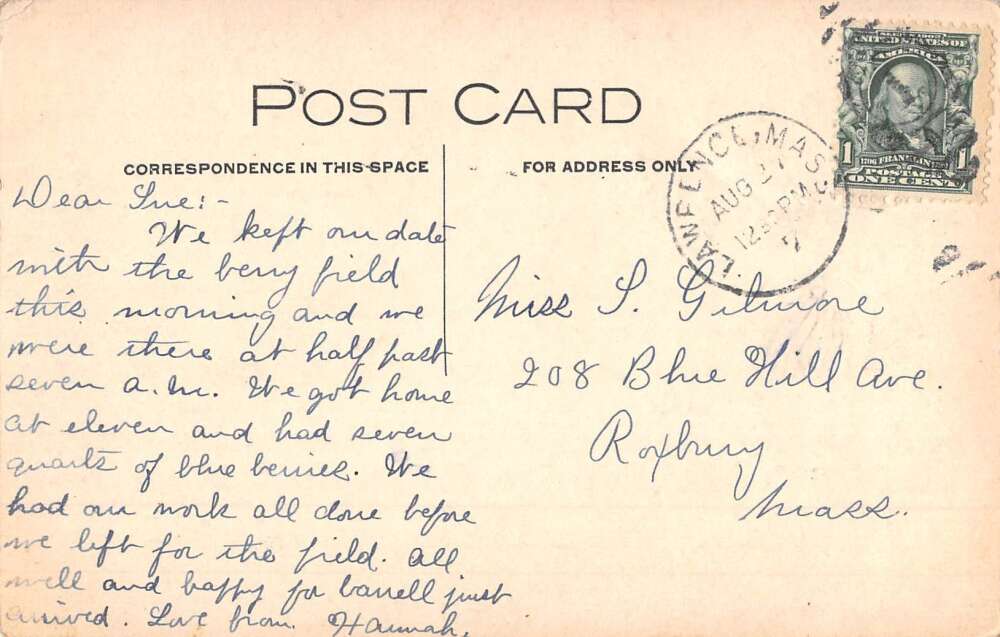 POST CARD
CORRESPONDENCE IN THIS SPACE
FOR ADDRESS ONLY
Dear Sue:-
We kept our date
with the berry field
this morning and we
were there at half past
seven a.m. We got home
at eleven and had seven
quarts of blue berries. We
had our work all done before
we left for the field. All
well and happy for barrell just
arrived. Love from Hannah.
LAWRENCE, MASS
AUG
12 30 PM
7
SERIES 1902
UNITED STATES OF
AMERICA
1706 FRANKLIN
1 POSTAGE 1
ONE CENT
Miss S. Gilmore
208 Blue Hill Ave.
Roxbury
Mass.